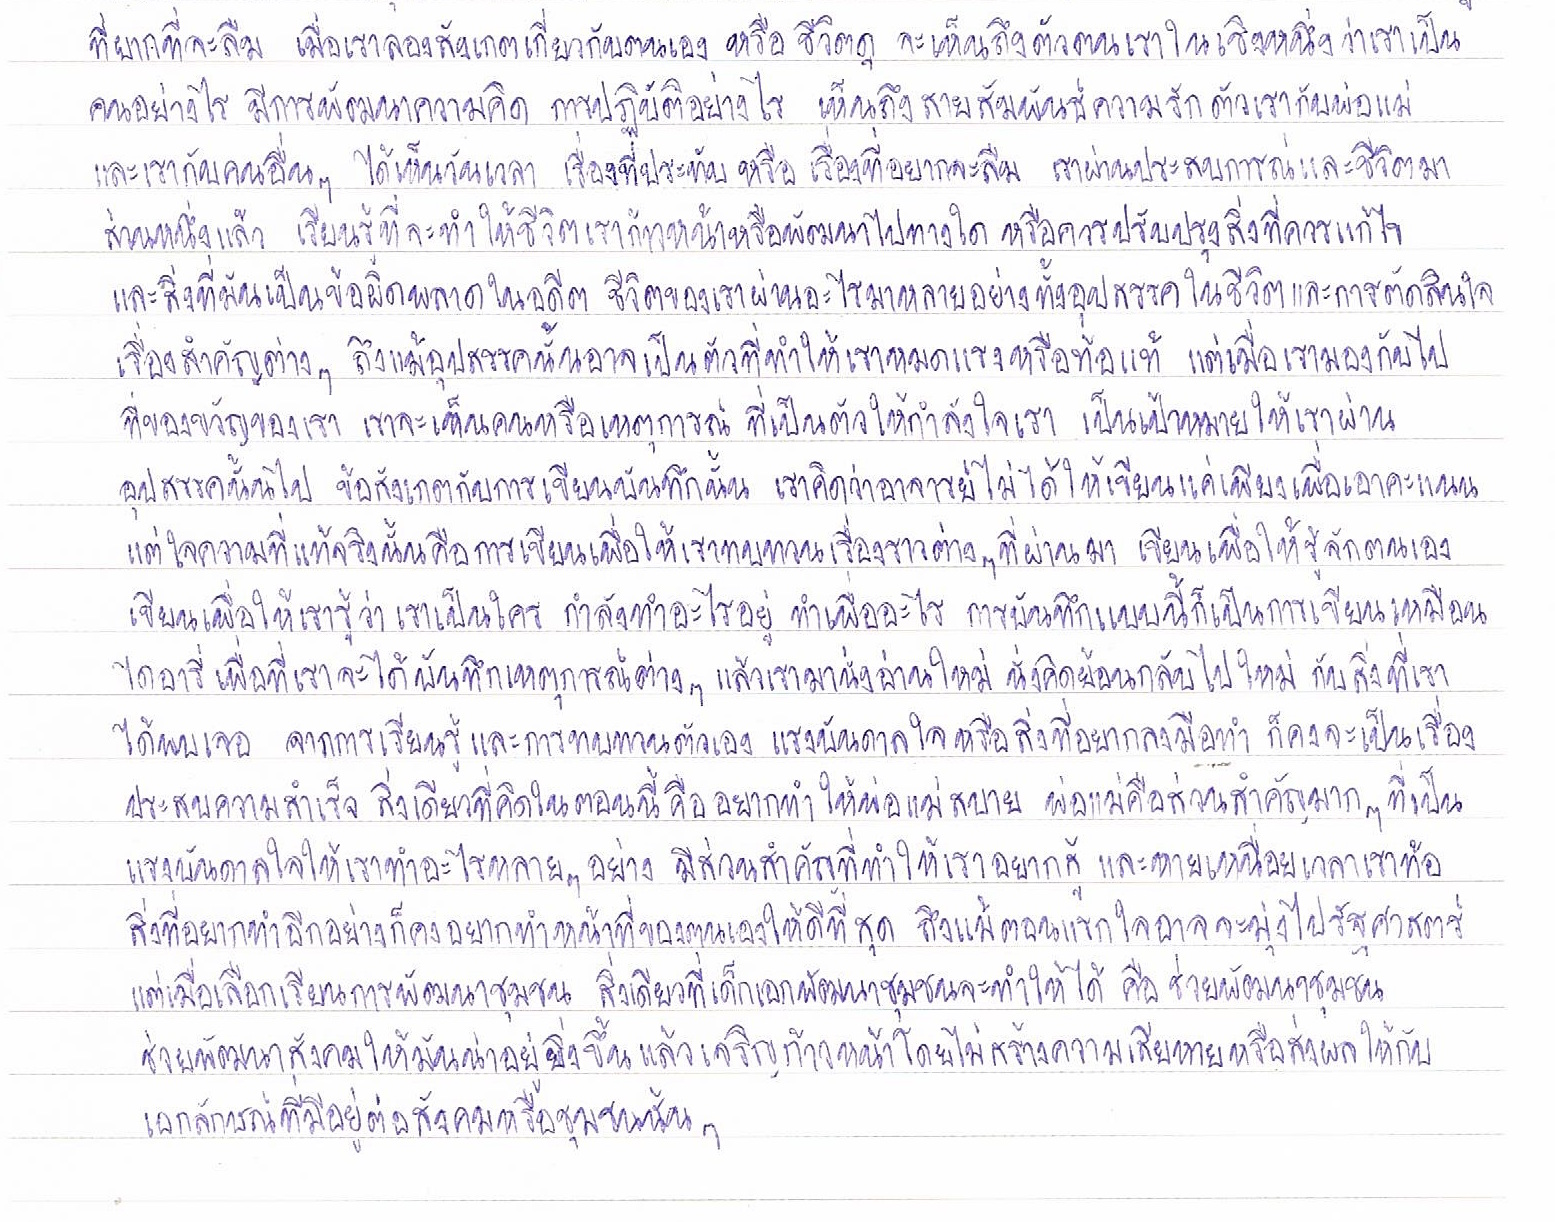 ที่ยากที่จะลืม เมื่อเราลองสังเกตเกี่ยวกับตนเอง หรือ ชีวิตดู จะเห็นถึงตัวตนเราในเชิงหนึ่งว่าเราเป็น
คนอย่างไร มีการพัฒนาความคิด การปฏิบัติอย่างไร เห็นถึงสายสัมพันธ์ความรัก ตัวเรากับพ่อแม่
และเรากับคนอื่นๆ ได้เห็นวันเวลา เรื่องที่ประทับ หรือ เรื่องที่อยากจะลืม เราผ่านประสบการณ์และชีวิตมา
ส่วนหนึ่งแล้ว เรียนรู้ที่จะทำให้ชีวิตเราก้าวหน้าหรือพัฒนาไปทางใด หรือควรปรับปรุงสิ่งที่ควรแก้ไข
และสิ่งที่มันเป็นข้อผิดพลาดในอดีต ชีวิตของเราผ่านอะไรมาหลายอย่างทั้งอุปสรรคในชีวิตและการตัดสินใจ
เรื่องสำคัญต่างๆ ถึงแม้อุปสรรคนั้นอาจเป็นตัวที่ทำให้เราหมดแรงหรือท้อแท้ แต่เมื่อเรามองกับไป
ที่ของขวัญของเรา เราจะเห็นคนหรือเหตุการณ์ ที่เป็นตัวให้กำลังใจเรา เป็นเป้าหมายให้เราผ่าน
อุปสรรคนั้นไป ข้อสังเกตกับการเขียนบันทึกนั้น เราคิดว่าอาจารย์ไม่ได้ให้เขียนแค่เพียงเพื่อเอาคะแนน
แต่ใจความที่แท้จริงนั้นคือการเขียนเพื่อให้เราทบทวนเรื่องราวต่างๆที่ผ่านมา เขียนเพื่อให้รู้จักตนเอง
เขียนเพื่อให้เรารู้ว่า เราเป็นใคร กำลังทำอะไรอยู่ ทำเพื่ออะไร การบันทึกแบบนี้ก็เป็นการเขียนเหมือน
ไดอารี่ เพื่อที่เราจะได้บันทึกเหตุการณ์ต่างๆ แล้วเรามานั่งอ่านใหม่ นั่งคิดย้อนกลับไปใหม่ กับสิ่งที่เรา
ได้พบเจอ จากการเรียนรู้ และการทบทวนตัวเอง แรงบันดาลใจหรือสิ่งที่อยากลงมือทำ ก็คงจะเป็นเรื่อง
ประสบความสำเร็จ สิ่งเดียวที่คิดในตอนนี้ คือ อยากทำให้พ่อแม่สบาย พ่อแม่คือส่วนสำคัญมากๆที่เป็น
แรงบันดาลใจให้เราทำอะไรหลายๆอย่าง มีส่วนสำคัญที่ทำให้เราอยากสู้ และหายเหนื่อยเวลาเราท้อ
สิ่งที่อยากทำอีกอย่างก็คงอยากทำหน้าที่ของตนเองให้ดีที่สุด ถึงแม้ตอนแรกใจอาจจะมุ่งไปรัฐศาสตร์
แต่เมื่อเลือกเรียนการพัฒนาชุมชน สิ่งเดียวที่เด็กเอกพัฒนาชุมชนจะทำให้ได้ คือ ช่วยพัฒนาชุมชน
ช่วยพัฒนาสังคมให้มันน่าอยู่ยิ่งขึ้นแล้วเจริญก้าวหน้าโดยไม่สร้างความเสียหายหรือส่งผลให้กับ
เอกลักษณ์ที่มีอยู่ต่อสังคมหรือชุมชนนั้นๆ